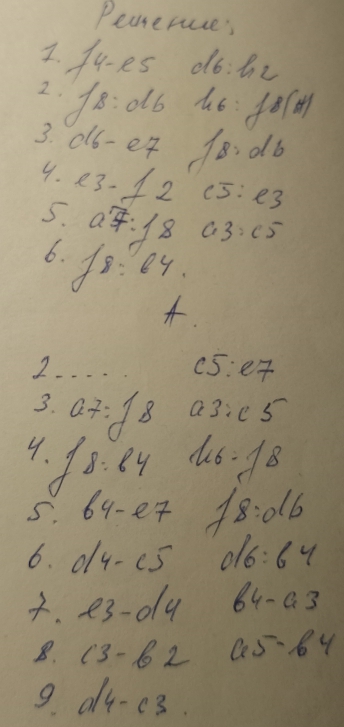 Решение:
1. f4-e5 d6:h2
2. f8:d6 h6:f8(A)
3. d6-e7 f8:d6
4. e3-f2 c5:e3
5. a7:f8 a3:c5
6. f8:b4.
A.
2..... c5:e7
3. a7:f8 a3:c5
4. f8:b4 h6-f8
5. b4-e7 f8:d6
6. d4-c5 d6:b4
7. e3-d4 b4-a3
8. c3-b2 a5-b4
9. d4-c3.